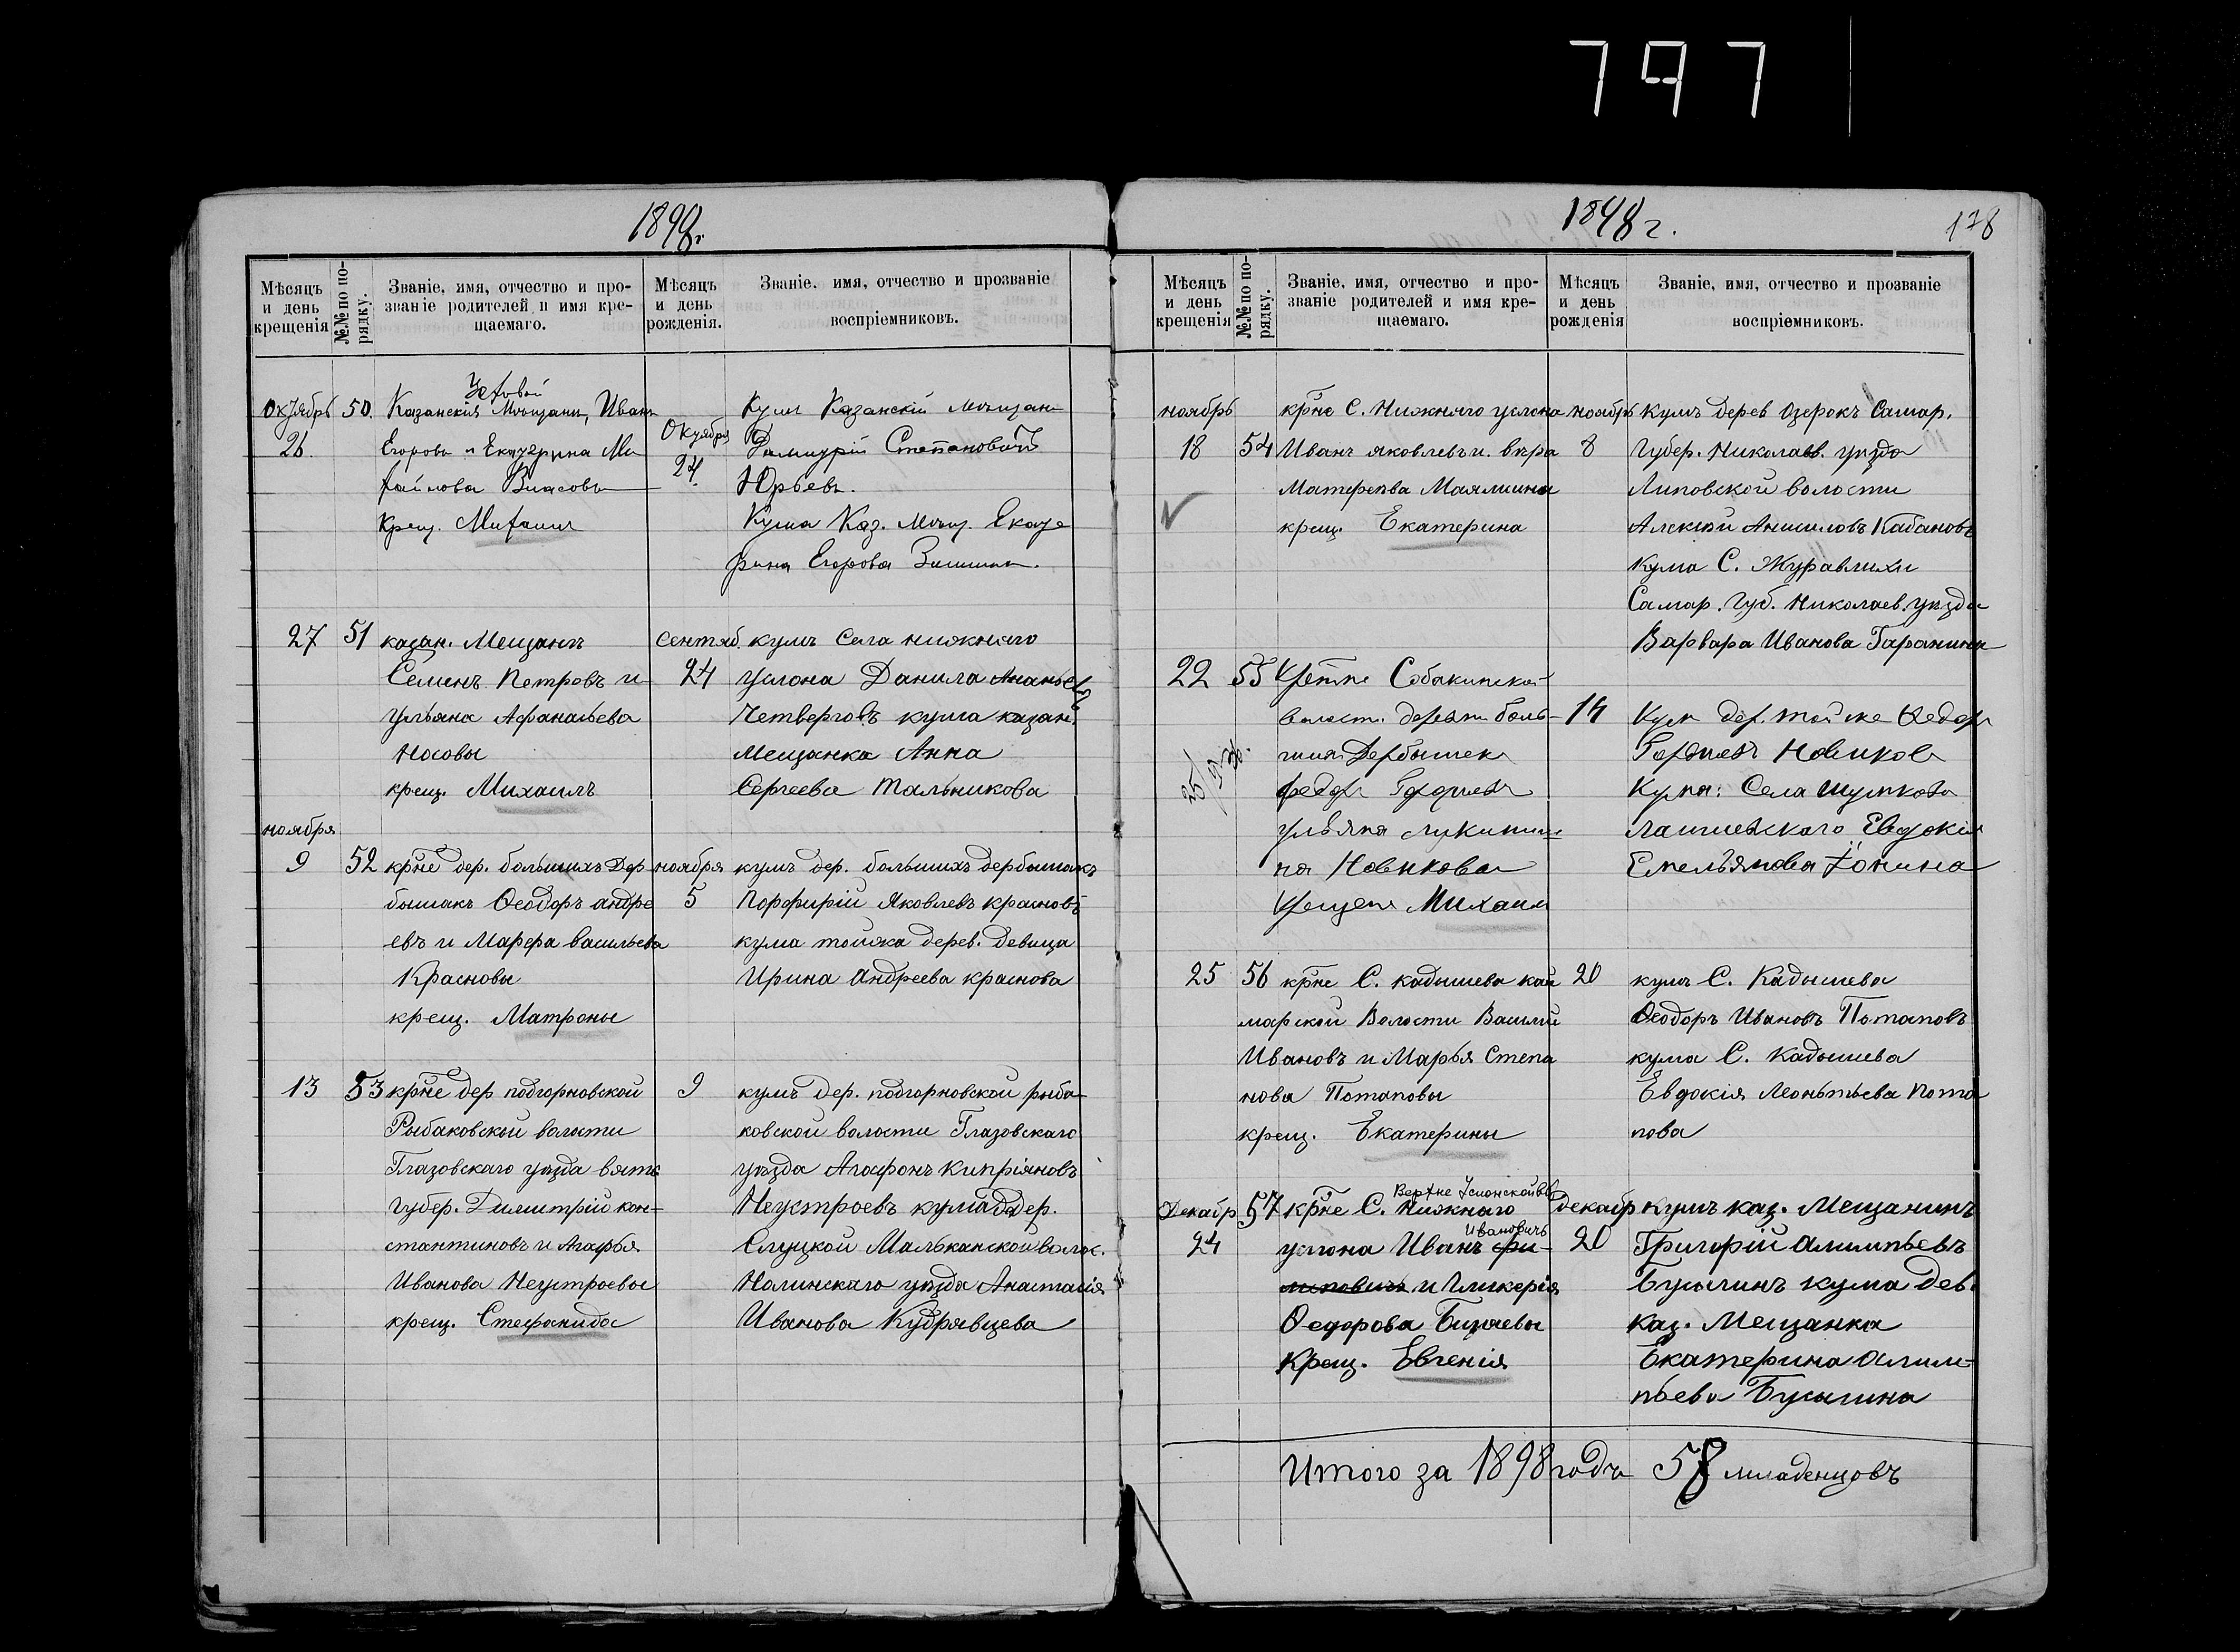 797
1898г.
Мѣсяцъ и день крещенія
№№ по порядку.
Званіе, имя, отчество и прозваніе родителей и имя крещаемаго.
Мѣсяцъ и день рожденія.
Званіе, имя, отчество и прозваніе воспріемниковъ.
Октябрь 26. 50.
Казанскія Мѣщанинъ, Иванъ
Егоровъ и Екатерина Ми
хайлова Власовы
Крещ. Михаилъ
Октября 24.
Кумъ Казанскій мѣщан
Димитрій Степановичъ
Юрьевъ.
Кума Каз. мѣщ. Екате
рина Егорова
27 51
казан. Мещанъ
Семенъ Петровъ и
Ульяна Афанасьева
Носовы
крещ. Михаилъ
сентяб. 24
кумъ Села нижняго
услона Данила Ананьевъ
Четверговъ кума казан.
мещанка Анна
Сергеева Тальникова
ноября 9 52
крне дер. большихъ Дер-
бышакъ Ѳеодоръ андре
евъ и Марфа васильева
Красновы
крещ. Матроны
ноября 5
кумъ дер. большихъ дербышакъ
Порфирій Яковлевъ красновъ
кума тойжа дерев. девица
Ирина Андреева краснова
13 53
крне дер подгорновской
Рыбаковской волости
Глазовскаго уѣзда вятс
губер. Димитрій кон-
стантиновъ и Агафья
Иванова Неустроевы
крещ. Стефанида
9
кумъ дер. подгорновской рыба-
ковской волости Глазовскаго
уѣзда Агафонъ Кипріяновъ
Неустроевъ кума дер.
Слуцкой Мальканской волос.
Нолинскаго уѣзда Анастасія
Иванова Кудрявцева
1898г.
178
Мѣсяцъ и день крещенія
№№ по порядку.
Званіе, имя, отчество и прозваніе родителей и имя крещаемаго.
Мѣсяцъ и день рожденія
Званіе, имя, отчество и прозваніе воспріемниковъ.
ноябрь 18 54
крне С. Нижняго услона
Иванъ яковлевъ и вѣра
Матфеева Маямины
крещ. Екатерина
ноябрь 8
Кумъ дерев Озерокъ Самар.
Губер. Николаев. уѣзда
Липовской волости
Алексѣй Анисимовъ Кабановъ
кума С. Журавлихи
Самар. Губ. Николаев. уѣзда
Варвара Иванова Гаранина
22 55
Собакинской
волост. деревни боль-
шія Дербышек
Федоръ
Ульяна лукини
на Новикова
Крещен Михаил
14
Кум дер. той же Федор
Новиков
Кума: Села Шумкова
лаишевскаго Евдокія
Емельянова Ѳонина
25 56
крне С. кадышева каи
марской Волости Василій
Ивановъ и Марья Степа
нова Потаповы
крещ. Екатерины
20
кумъ С. Кадышева
Ѳеодоръ Ивановъ Потаповъ
кума С. Кадышева
Евдокія Леонтьева Пота
пова
Декабр 24 57
Верхне Услонской в
крне С. Нижняго
Ивановичъ
услона Иванъ фи-
липовичъ и Гликерія
Ѳедорова
Крещ. Евгенія
декабр 20
Кумъ каз. Мещанинъ
Григорій Алимпьевъ
Бусыгинъ кума дев.
Каз. Мещанка
Екатерина Алим-
пьева Бусыгина
Итого за 1898 годъ 58 младенцовъ